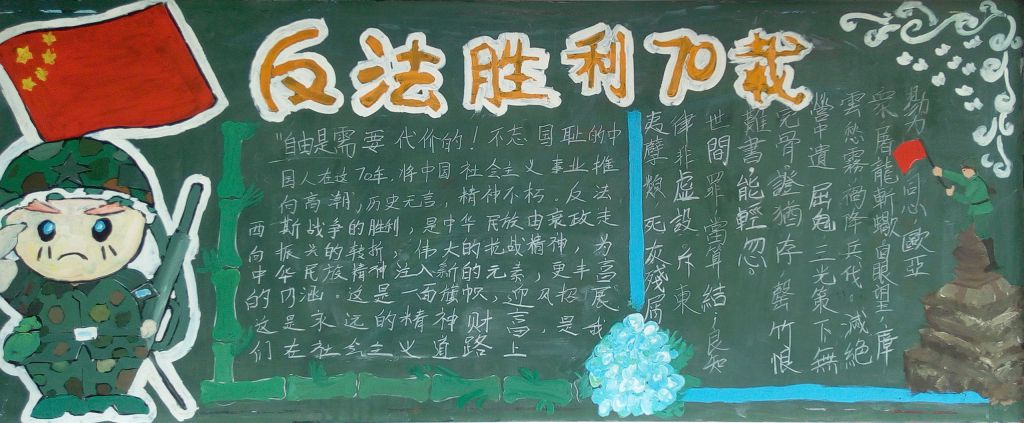 反法胜利70载
"自由是需要代价的！不忘国耻的中
国人在这70年,将中国社会主义事业推
向高潮,历史无言,精神不朽.反法
西斯战争的胜利,是中华民族由衰败走
向振兴的转折,伟大的抗战精神,为
中华民族精神注入新的元素,更丰富
的内涵.这是一面旗帜,迎风招展
这是永远的精神财富,是我
们在社会主义道路上
力同心歐亞
衆屠龍斬
雲愁霧禍降兵代.滅絕
營中遺屈鬼三光策下無
完骨證猶存.罄竹恨
難書,能輕忽。
世間罪當算結.良知
律非虛設斥東
夷孽 死灰殘局